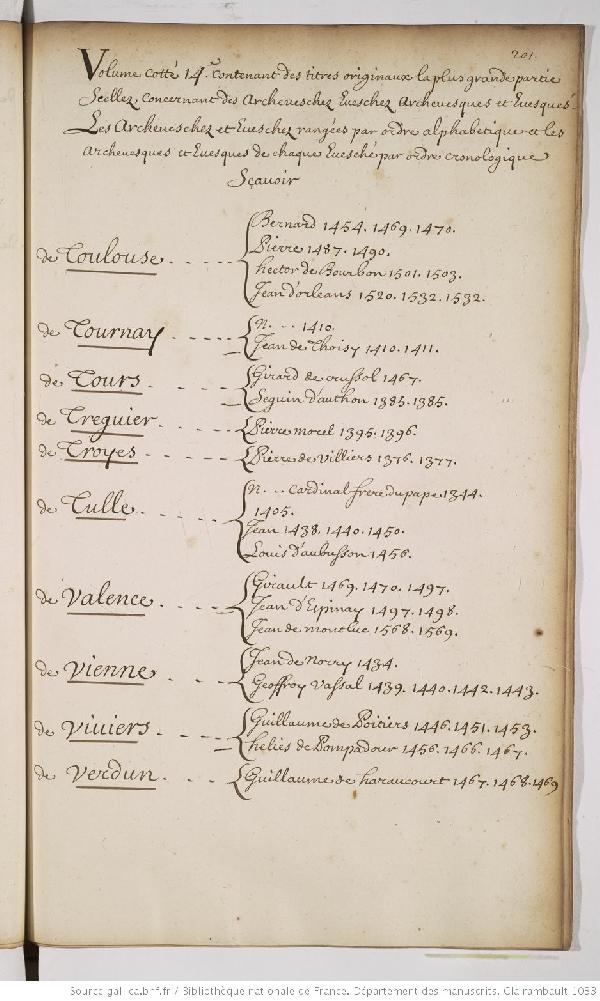 201.
Volume cotté 14.e contenant des titres originaux la plus grande partie
Scellez, concernant des Archeveschez Eveschez Archevesques et Evesques
Les Archeveschez et Eveschez rangées par ordre alphabetique et les
Archevesques et Evesques de chaque Evesché par ordre cronologique
Sçavoir
de Toulouse. . . . . . { Bernard 1454. 1469. 1470.
Pierre 1487. 1490.
hector de Bourbon 1501. 1503.
Jean d'orleans 1520. 1532. 1532.
de Tournay . . . . . { N. . . . 1410.
Jean de Thoisy 1410. 1411.
de Tours . . . . . { Girard de crussol 1467.
Seguin d'authon 1385. 1385.
de Treguier . . . . . { Pierre morel 1395. 1396.
de Troyes . . . . . { Pierre de Villiers 1376. 1377.
de Tulle . . . . . { N. . . cardinal frere du pape 1344.
1405.
Jean 1438. 1440. 1450.
Louis d'aubusson 1456.
de Valence . . . . . { Girault 1469. 1470. 1497.
Jean d'Epinay 1497. 1498.
Jean de montluc 1568. 1569.
de Vienne . . . . . { Jean de Norry 1434.
Geoffroy Vassal 1439. 1440. 1442. 1443.
de Viviers . . . . . { Guillaume de Poiciers 1446. 1451. 1453.
helies de Pompadour 1456. 1466. 1467.
de Verdun . . . . . { Guillaume de haraucourt 1467. 1468. 1469
Source gallica.bnf.fr / Bibliothèque nationale de France. Département des manuscrits. Clairambault 1053